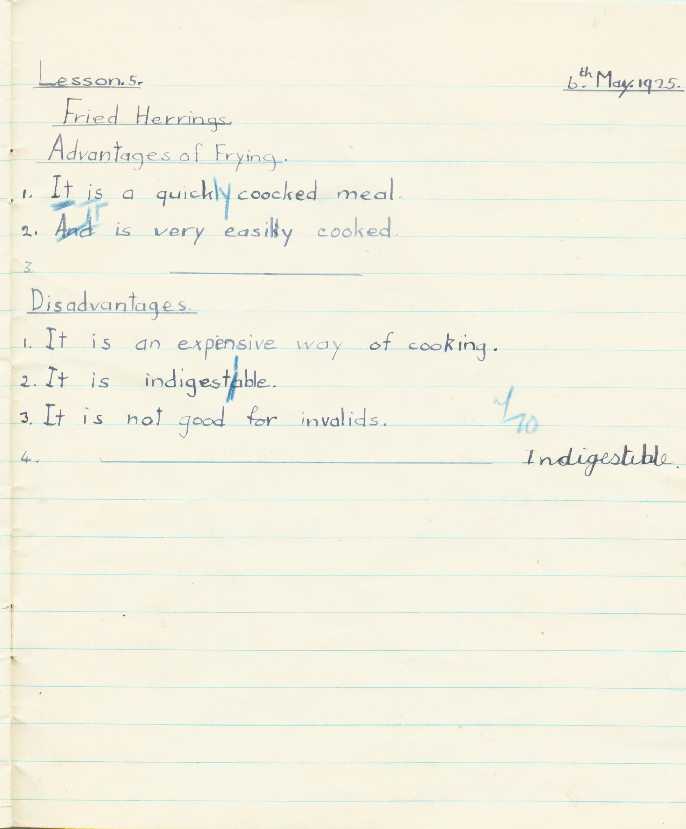 Lesson.5. 6th May.1925.
Fried Herrings.
Advantages of Frying.
1. It is a quickly coocked meal.
2. And It is very easilly cooked.
3.
Disadvantages.
1. It is an expensive way of cooking.
2. It is indigestable.
3. It is not good for invalids.
/10
4. Indigestible.